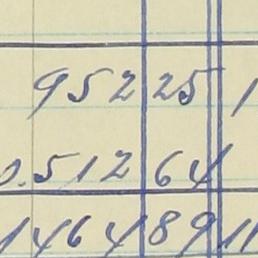 952 25 1
0.512 64
1464 89 11